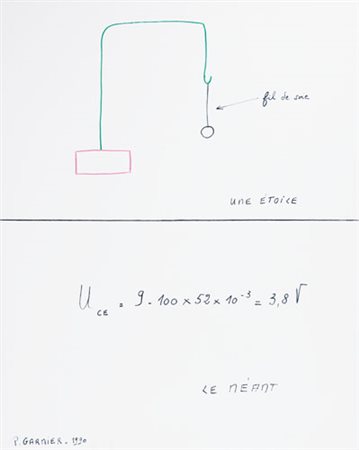 fil de soie
UNE ÉTOILE
U CE = 9 - 100 × 52 × 10⁻³ = 3,8 V
LE NÉANT
P. GARNIER - 1990